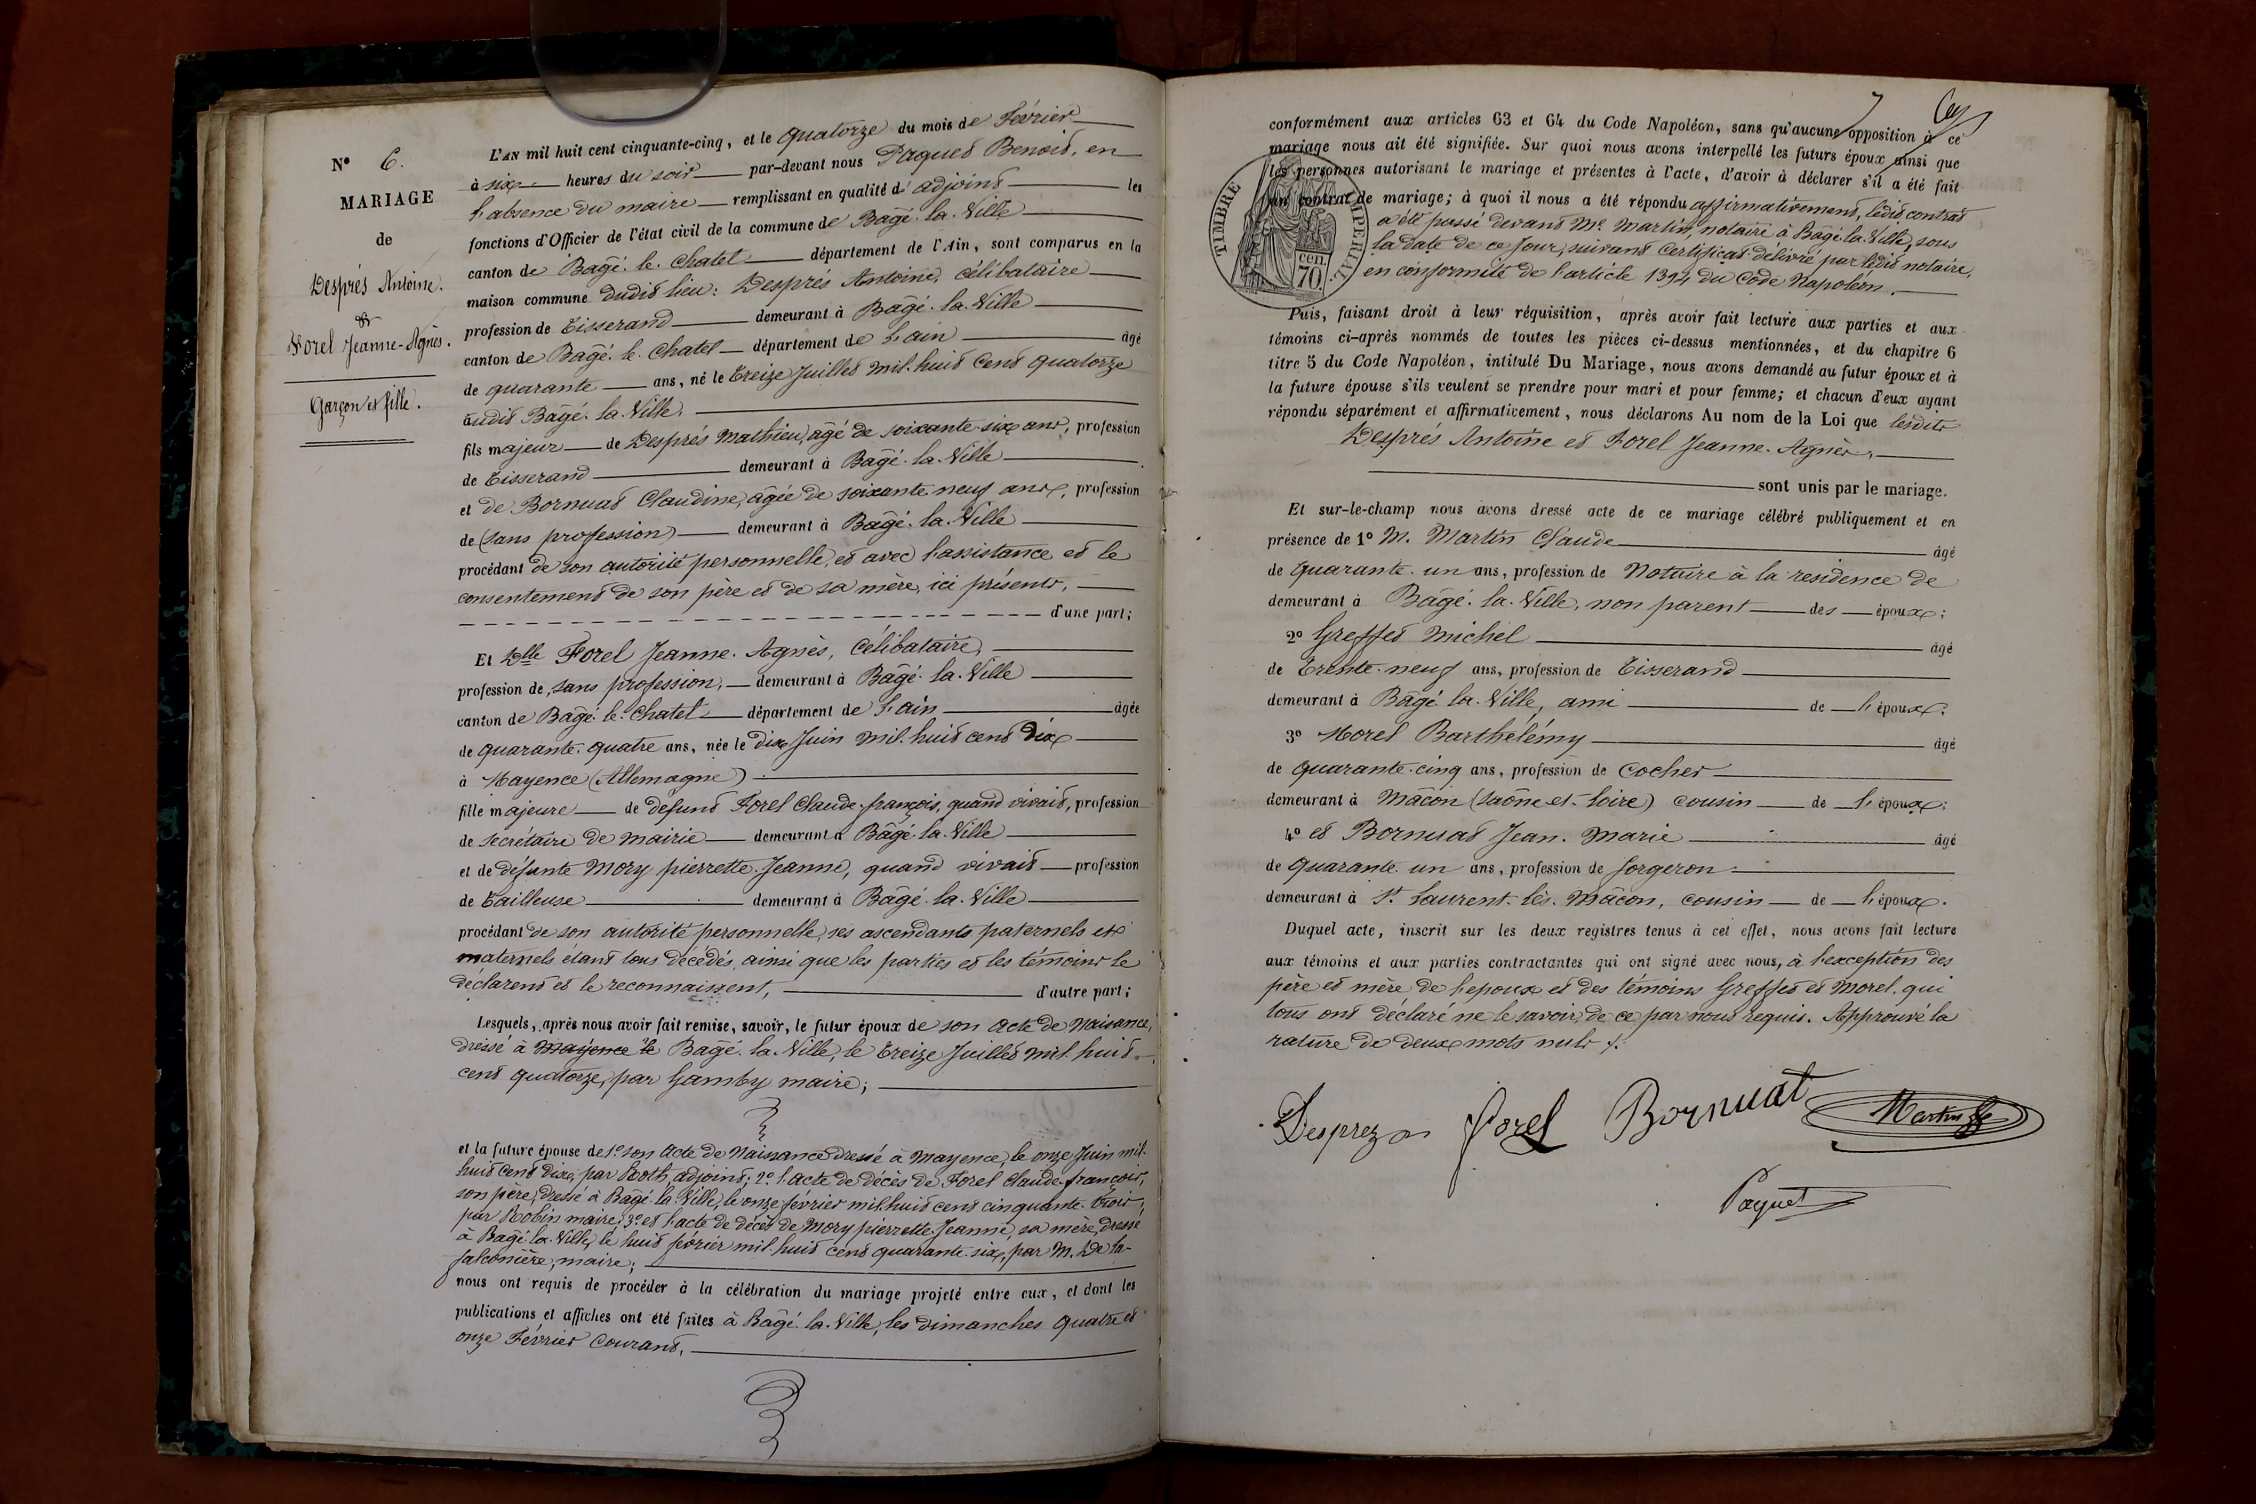 N° 6.
MARIAGE
de
Després Antoine.
&
Forel Jeanne-Agnès.
Garçon et fille.
L'AN mil huit cent cinquante-cinq, et le quatorze du mois de Février
à six heures du soir par-devant nous Paques Benoit, en
l'absence du maire remplissant en qualité d'adjoint les
fonctions d'Officier de l'état civil de la commune de Bâgé-la-Ville
canton de Bâgé-le-Chatel département de l'Ain, sont comparus en la
maison commune dudit lieu: Després Antoine, célibataire
profession de Tisserand demeurant à Bâgé-la-Ville
canton de Bâgé-le-Chatel département de l'ain âgé
de quarante ans, né le treize Juillet mil-huit cent quatorze
audit Bâgé-la-Ville.
fils majeur de Després Mathieu, âgé de soixante-six ans, profession
de Tisserand demeurant à Bâgé-la-Ville
et de Bornuat Claudine, âgée de soixante-neuf ans, profession
de (sans profession) demeurant à Bâgé-la-Ville
procédant de son autorité personnelle, et avec l'assistance et le
consentement de son père et de sa mère, ici présents,
d'une part;
Et Dlle Forel Jeanne-Agnès, célibataire,
profession de, sans profession, demeurant à Bâgé-la-Ville
canton de Bâgé-le-Chatel département de l'ain âgée
de quarante-quatre ans, née le dix Juin mil-huit cent dix
à Mayence (Allemagne)
fille majeure de défunt Forel Claude-françois, quand vivait, profession
de secrétaire de mairie demeurant à Bâgé-la-Ville
et de défunte Mory pierrette-Jeanne, quand vivait profession
de tailleuse demeurant à Bâgé-la-Ville
procédant de son autorité personnelle, ses ascendants paternels et
maternels étant tous décédés, ainsi que les parties et les témoins le
déclarent et le reconnaissent, d'autre part;
Lesquels, après nous avoir fait remise, savoir, le futur époux de son acte de Naissance,
dressé à Mayence le Bâgé-la-Ville, le treize Juillet mil huit-
cent quatorze, par Gamby maire;
et la future épouse de 1° son acte de Naissance dressé à Mayence, le onze Juin mil-
huit cent dix, par Roth, adjoint; 2° l'acte de décès de Forel Claude-françois,
son père, dressé à Bâgé-la-Ville, le onze février mil huit cent cinquante-trois,
par Robin maire; 3° et l'acte de décès de Mory pierrette-Jeanne, sa mère, dressé
à Bâgé-la-Ville, le huit février mil-huit cent quarante-six, par M. De la-
falconière, maire;
nous ont requis de procéder à la célébration du mariage projeté entre eux, et dont les
publications et affiches ont été faites à Bâgé-la-Ville, les dimanches quatre et
onze Février courant,
7
conformément aux articles 63 et 64 du Code Napoléon, sans qu'aucune opposition à ce
mariage nous ait été signifiée. Sur quoi nous avons interpellé les futurs époux ainsi que
les personnes autorisant le mariage et présentes à l'acte, d'avoir à déclarer s'il a été fait
un contrat de mariage; à quoi il nous a été répondu affirmativement, ledit contrat
a été passé devant Me Martin, notaire à Bâgé-la-Ville, sous
la date de ce jour, suivant certificat délivré par ledit notaire,
en conformité de l'article 1394 du Code Napoléon.
TIMBRE IMPERIAL
cen.
70
Puis, faisant droit à leur réquisition, après avoir fait lecture aux parties et aux
témoins ci-après nommés de toutes les pièces ci-dessus mentionnées, et du chapitre 6
titre 5 du Code Napoléon, intitulé Du Mariage, nous avons demandé au futur époux et à
la future épouse s'ils veulent se prendre pour mari et pour femme; et chacun d'eux ayant
répondu séparément et affirmativement, nous déclarons Au nom de la Loi que lesdits
Després Antoine et Forel Jeanne-Agnès,
sont unis par le mariage.
Et sur-le-champ nous avons dressé acte de ce mariage célébré publiquement et en
présence de 1° M. Martin Claude âgé
de quarante-un ans, profession de Notaire à la résidence de
demeurant à Bâgé-la-Ville, non parent des époux;
2° Greffet Michel âgé
de trente-neuf ans, profession de Tisserand
demeurant à Bâgé-la-Ville, ami de l'époux;
3° Morel Barthélémy âgé
de quarante-cinq ans, profession de cocher
demeurant à Mâcon (Saône-et-Loire) cousin de l'époux;
4° et Bornuat Jean-Marie âgé
de quarante-un ans, profession de forgeron
demeurant à St Laurent-lès-Mâcon, cousin de l'époux.
Duquel acte, inscrit sur les deux registres tenus à cet effet, nous avons fait lecture
aux témoins et aux parties contractantes qui ont signé avec nous, à l'exception des
père et mère de l'époux et des témoins Greffet et Morel qui
tous ont déclaré ne le savoir, de ce par nous requis. Approuvé la
rature de deux mots nuls.
Desprez a Forel Bornuat Martin
Paquet